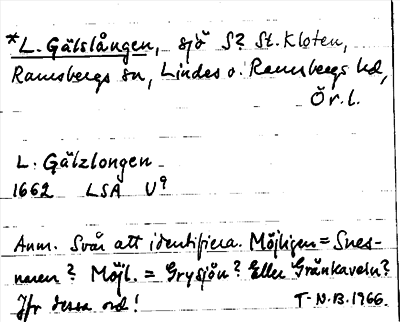 *L. Gälslången, sjö S? St. Kloten,
Ramsbergs sn, Lindes o. Ramsbergs hd,
Ör. l.
L. Gälzlongen
1662 LSA U⁹
Anm. Svår att identifiera. Möjligen = Snes-
naren? Möjl. = Grysjön? Eller Gränkaveln?
Jfr dessa ord! T-N.B. 1966.